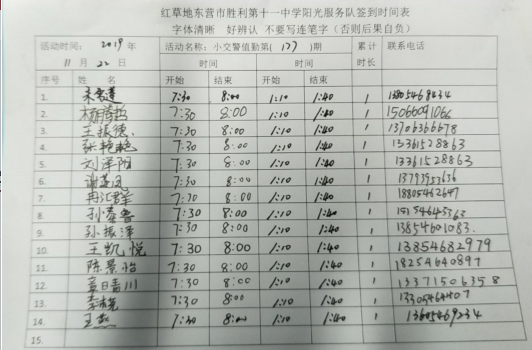 红草地东营市胜利第十一中学阳光服务队签到时间表
字体清晰 好辨认 不要写连笔字（否则后果自负）
活动时间： 2019年 活动名称：小交警值勤第（127）期 累计 联系电话
11月22日 时间 时间 时长
序号 姓名 开始 结束 开始 结束
1. 7:30 8:00 1:10 1:40 1
2. 7:30 8:00 1:10 1:40 1 15066091066
3. 王振德 7:30 8:00 1:10 1:40 1 13706366678
4. 张艳艳 7:30 8:00 1:10 1:40 1 13361528863
5. 刘泽阳 7:30 8:00 1:10 1:40 1 13361528863
6. 7:30 8:00 1:10 1:40 1 13793953636
7. 冉汇群 7:30 8:00 1:10 1:40 1 18805462647
8. 孙春香 7:30 8:00 1:10 1:40 1
9. 孙振泽 7:30 8:00 1:10 1:40 1 13854601083.
10. 王凯悦 7:30 8:00 1:10 1:40 1 13854682979
11. 陈景怡 7:30 8:00 1:10 1:40 1 18254640897
12. 7:30 8:00 1:10 1:40 1 13371506358
13. 7:30 8:00 1:10 1:40 1
14. 7:30 8:00 1:10 1:40 1 13605469234
15.